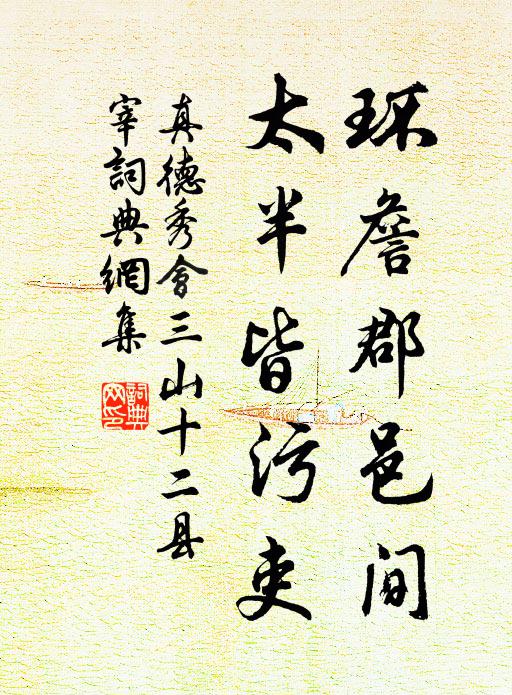 环詹郡邑间
太半皆污吏
真德秀會三山十二县
宰詞典網集
詞典
网印